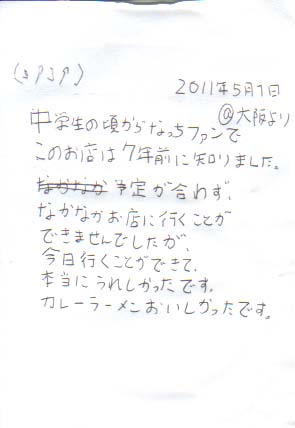 2011年5月1日
@大阪より
中学生の頃からなっちファンで
このお店は7年前に知りました。
なかなか 予定が合わず、
なかなかお店に行くことが
できませんでしたが、
今日行くことができて、
本当にうれしかったです。
カレーラーメンおいしかったです。